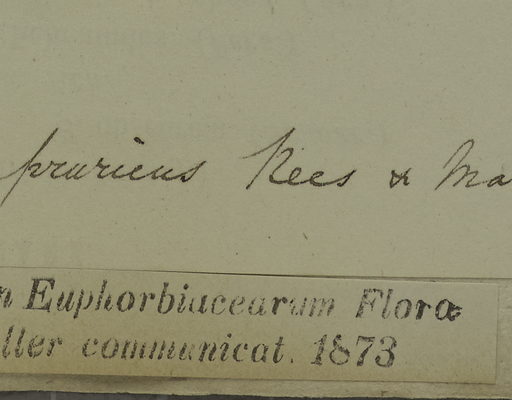 pruriens Nees & Ma
n Euphorbiacearum Floræ
ller communicat. 1873